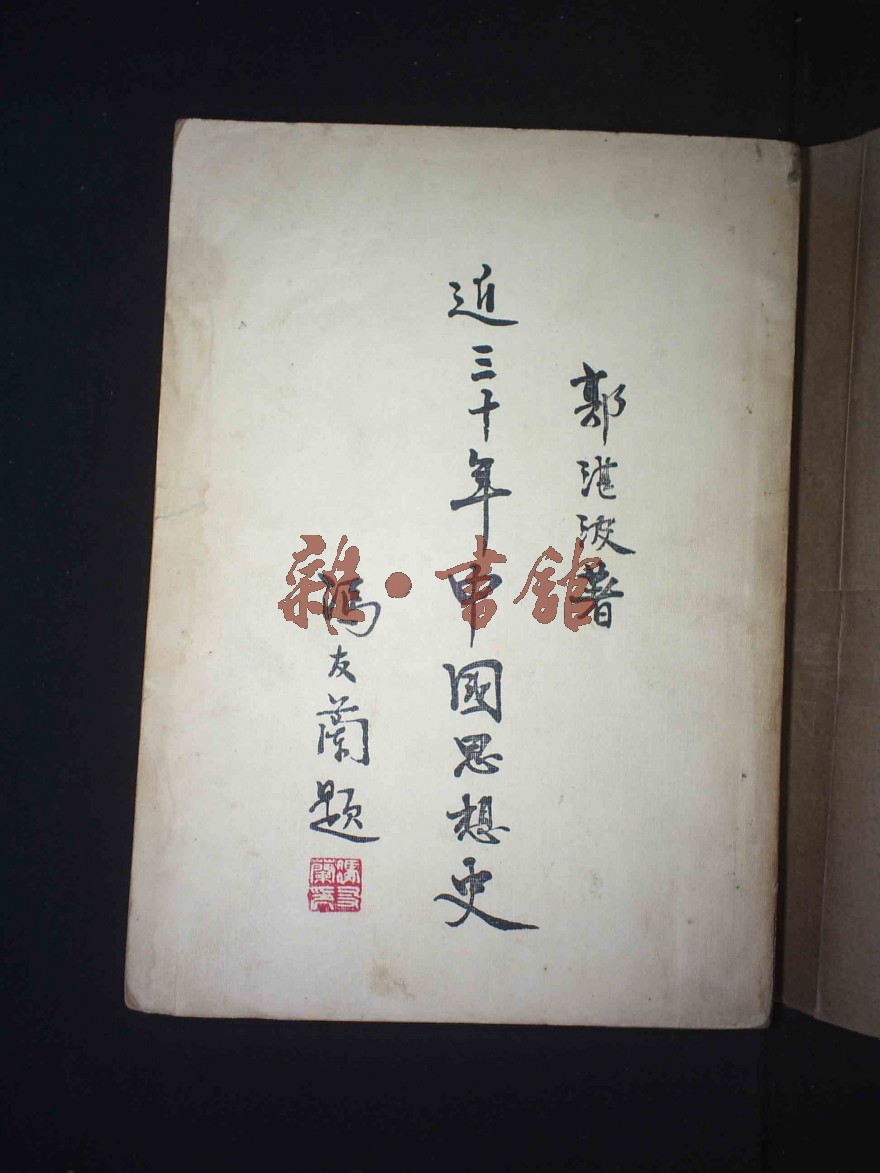 郭湛波著
近三十年中國思想史
馮友蘭題
馮友蘭印
雜·書館